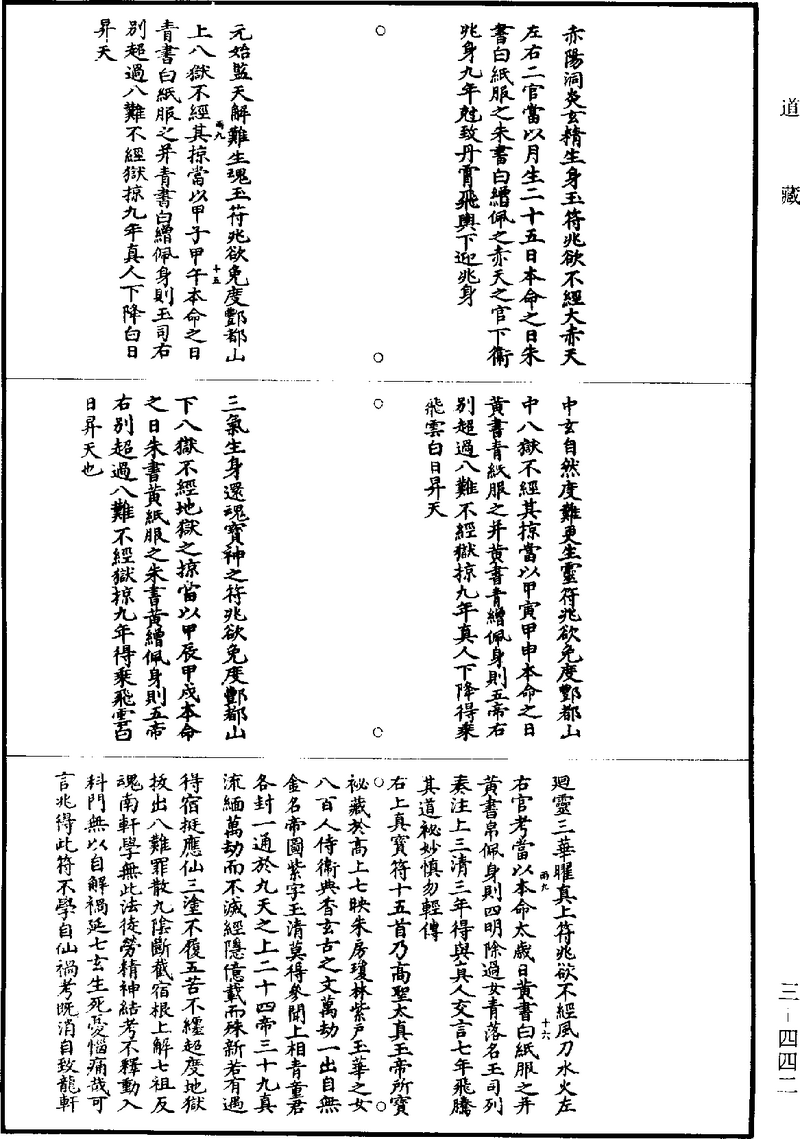 道藏
赤陽洞炎玄精生身玉符兆欲不經大赤天
左右二官當以月生二十五日本命之日朱
書白紙服之朱書白繒佩之赤天之官下衞
兆身九年尅致丹霄飛輿下迎兆身
元始監天解難生魂玉符兆欲免度酆都山
上八獄不經其掠當以甲子甲午本命之日
青書白紙服之并青書白繒佩身則玉司右
別超過八難不經獄掠九年真人下降白日
昇天
兩九
十五
中玄自然度難更生靈符兆欲免度酆都山
中八獄不經其掠當以甲寅甲申本命之日
黃書青紙服之并黃書青繒佩身則五帝右
別超過八難不經獄掠九年真人下降得乘
飛雲白日昇天
三氣生身還魂寶神之符兆欲免度酆都山
下八獄不經地獄之掠當以甲辰甲戌本命
之日朱書黃紙服之朱書黃繒佩身則五帝
右別超過八難不經獄掠九年得乘飛雲白
日昇天也
迴靈三華曜真上符兆欲不經風刀水火左
右官考當以本命太歲日黃書白紙服之并
黃書帛佩身則四明除過女青落名玉司列
奏注上三清三年得與真人交言七年飛騰
其道祕妙慎勿輕傳
兩九
十六
右上真寶符十五首乃高聖太真玉帝所寶
祕藏於高上七映朱房瓊林紫戶玉華之女
八百人侍衞典香玄古之文萬劫一出自無
金名帝圖紫字玉清莫得參聞上相青童君
各封一通於九天之上二十四帝三十九真
流緬萬劫而不滅經隱億載而殊新若有過
得宿挺應仙三塗不履五苦不纏超度地獄
拔出八難罪散九陰斷截宿根上解七祖反
魂南軒學無此法徒勞精神結考不釋動入
科門無以自解禍延七玄生死憂惱痛哉可
言兆得此符不學自仙禍考既消自致龍軒
三-四四二